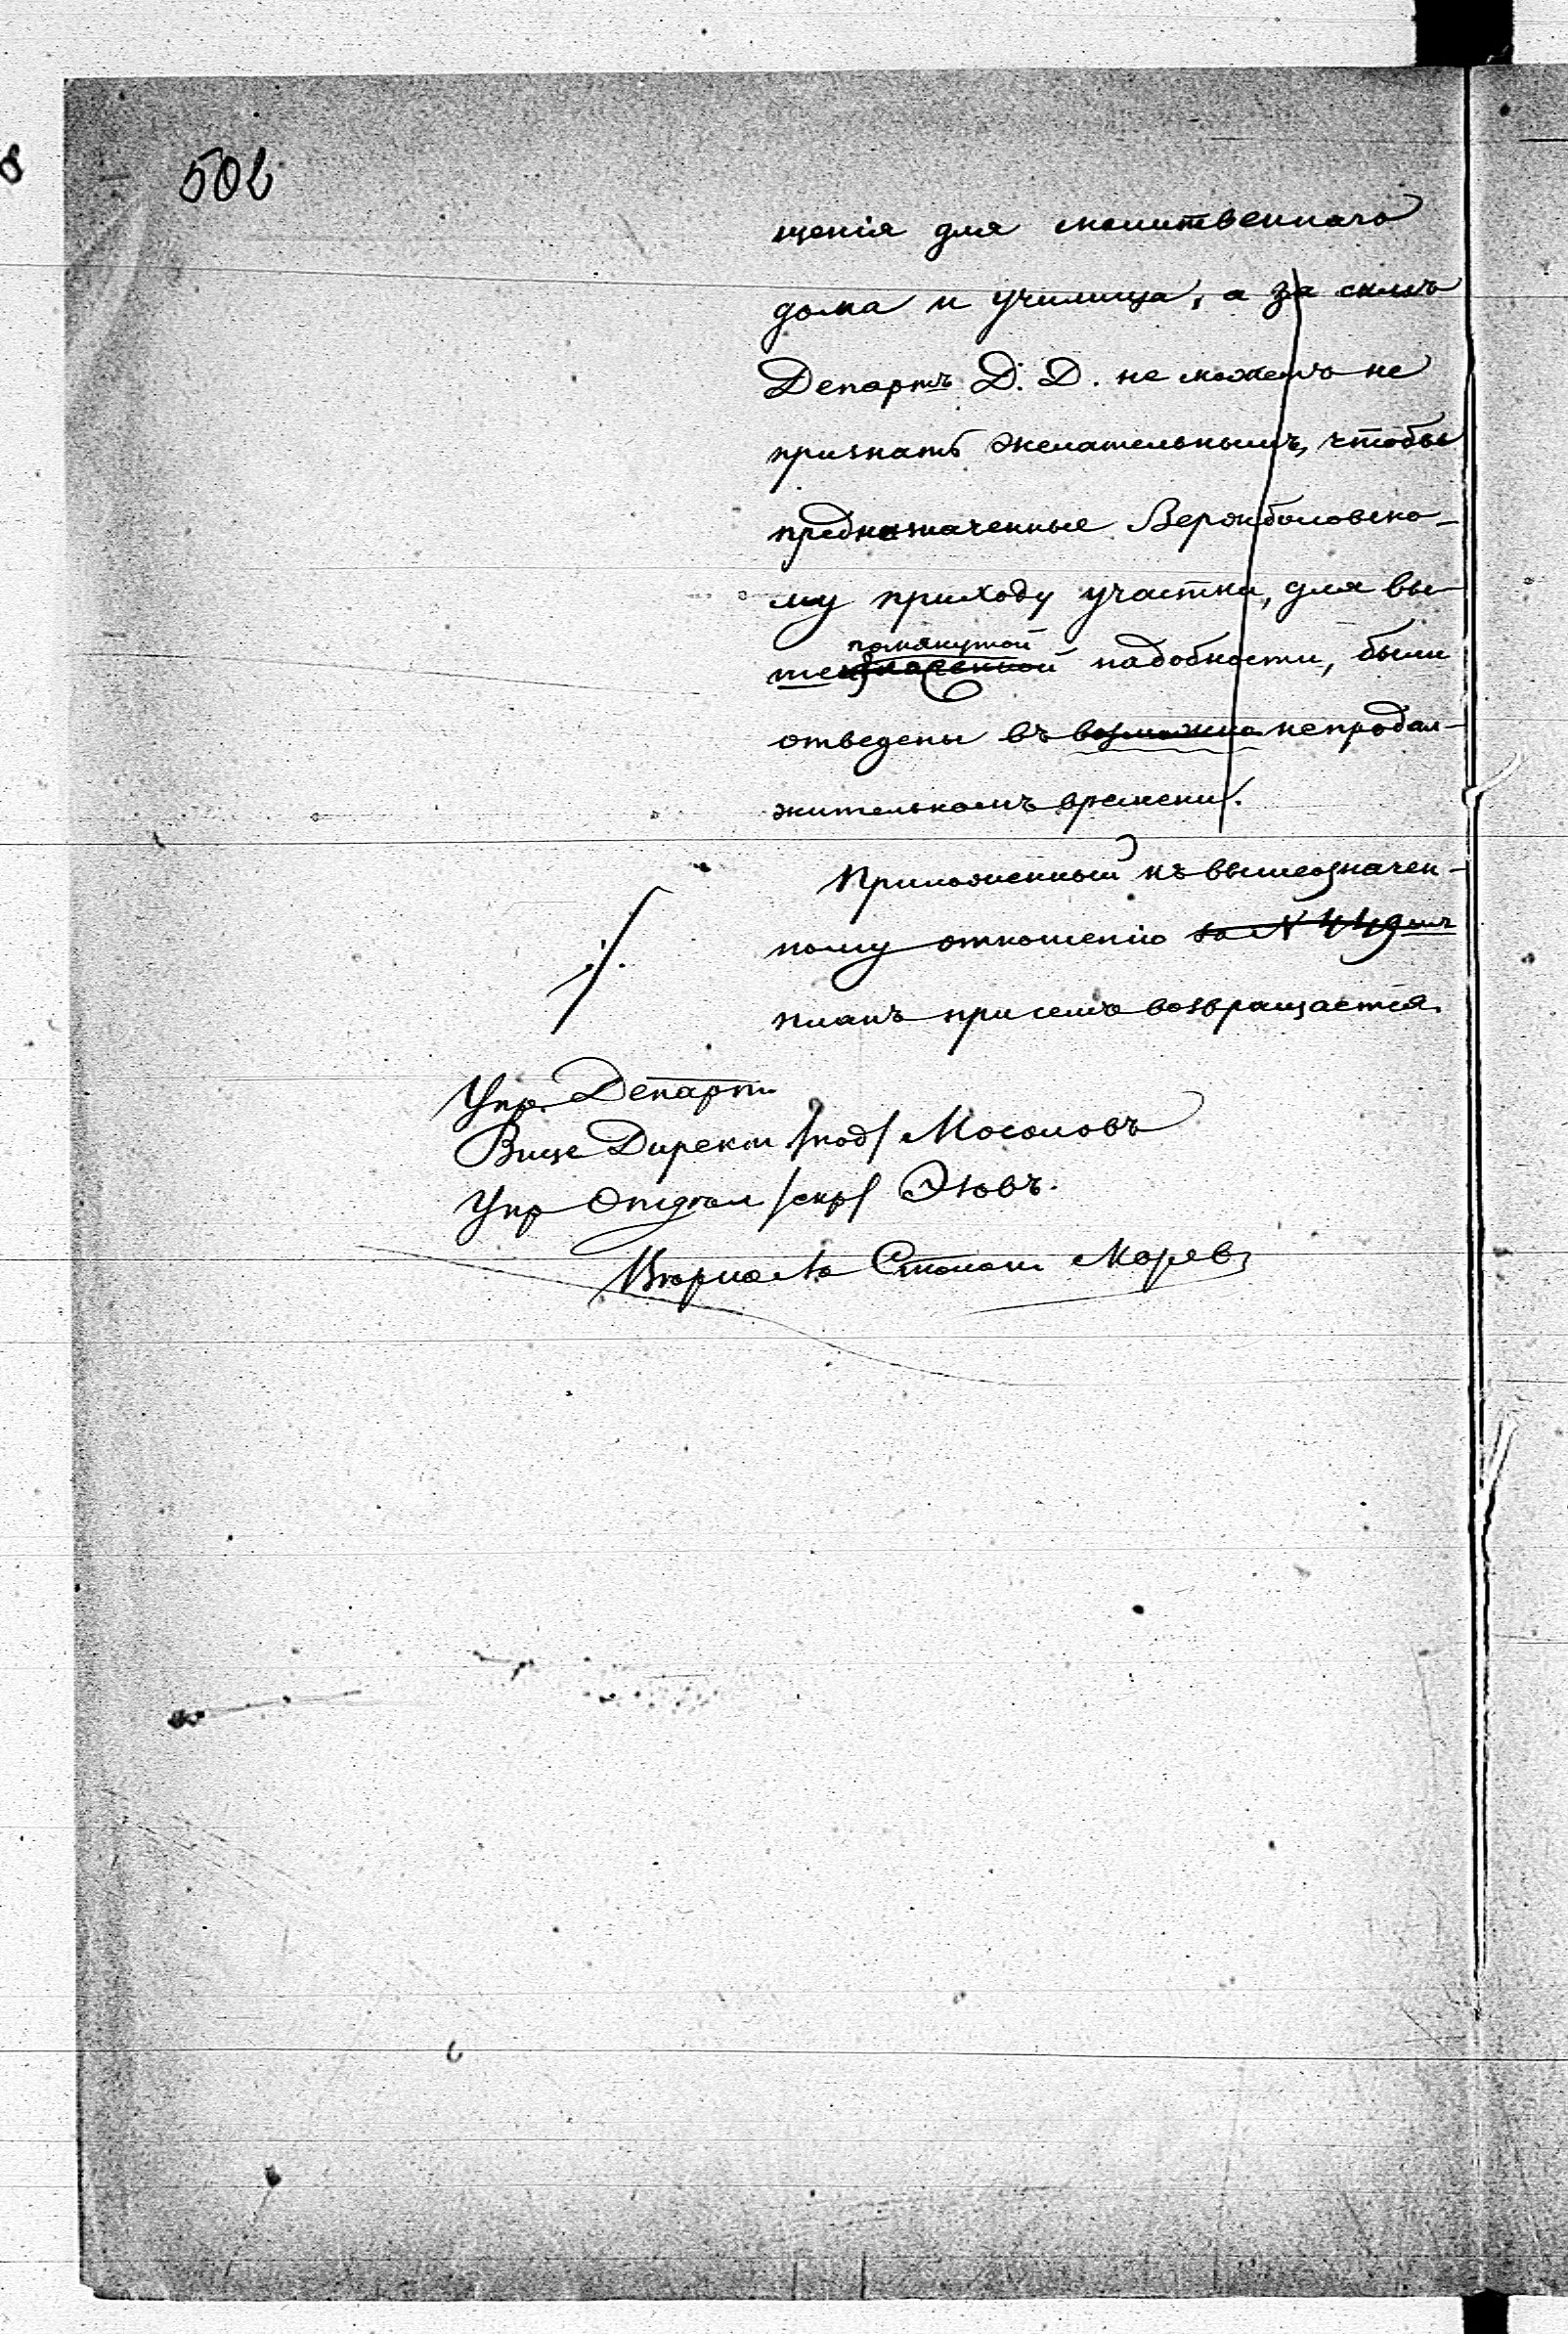 50б
щенія для молитвеннаго
дома и училища, а за симъ
Департъ Д. Д. не можетъ не
признать желательнымъ, чтобы
предназначенные Вержболовско-
му приходу участки, для вы-
помянутой
шеозначенной надобности, были
отведены въ возможно непродол-
жительномъ времени.
Приложенный къ вышеозначен-
ному отношенію за N 449
планъ при семъ возвращается.
Упр. Департ.
Вице Директ /под/ Мосоловъ
Упр Отдѣл /скр/ Эзовъ.
Вѣрно: Столонач Маревъ